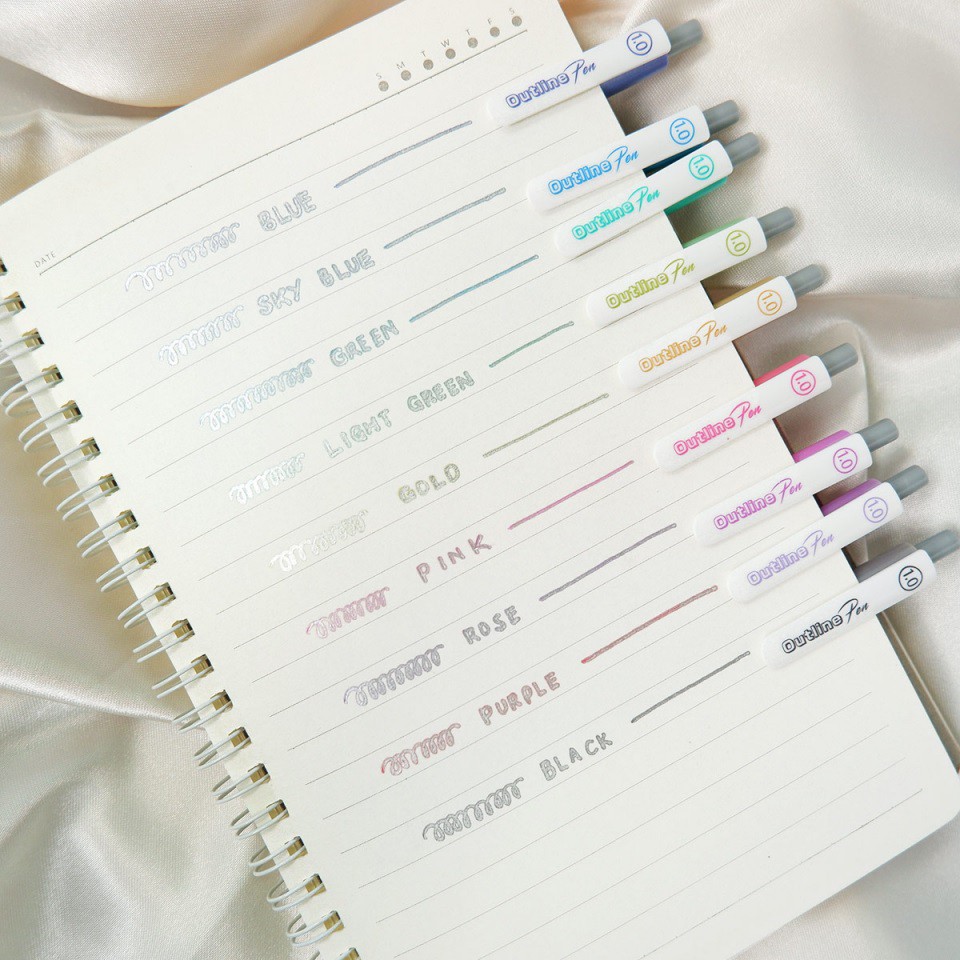 S M T W T F S
DATE
BLUE
Outline Pen 1.0
SKY BLUE
Outline Pen 1.0
GREEN
Outline Pen 1.0
LIGHT GREEN
Outline Pen 1.0
GOLD
Outline Pen 1.0
PINK
Outline Pen 1.0
ROSE
Outline Pen 1.0
PURPLE
Outline Pen 1.0
BLACK
Outline Pen 1.0